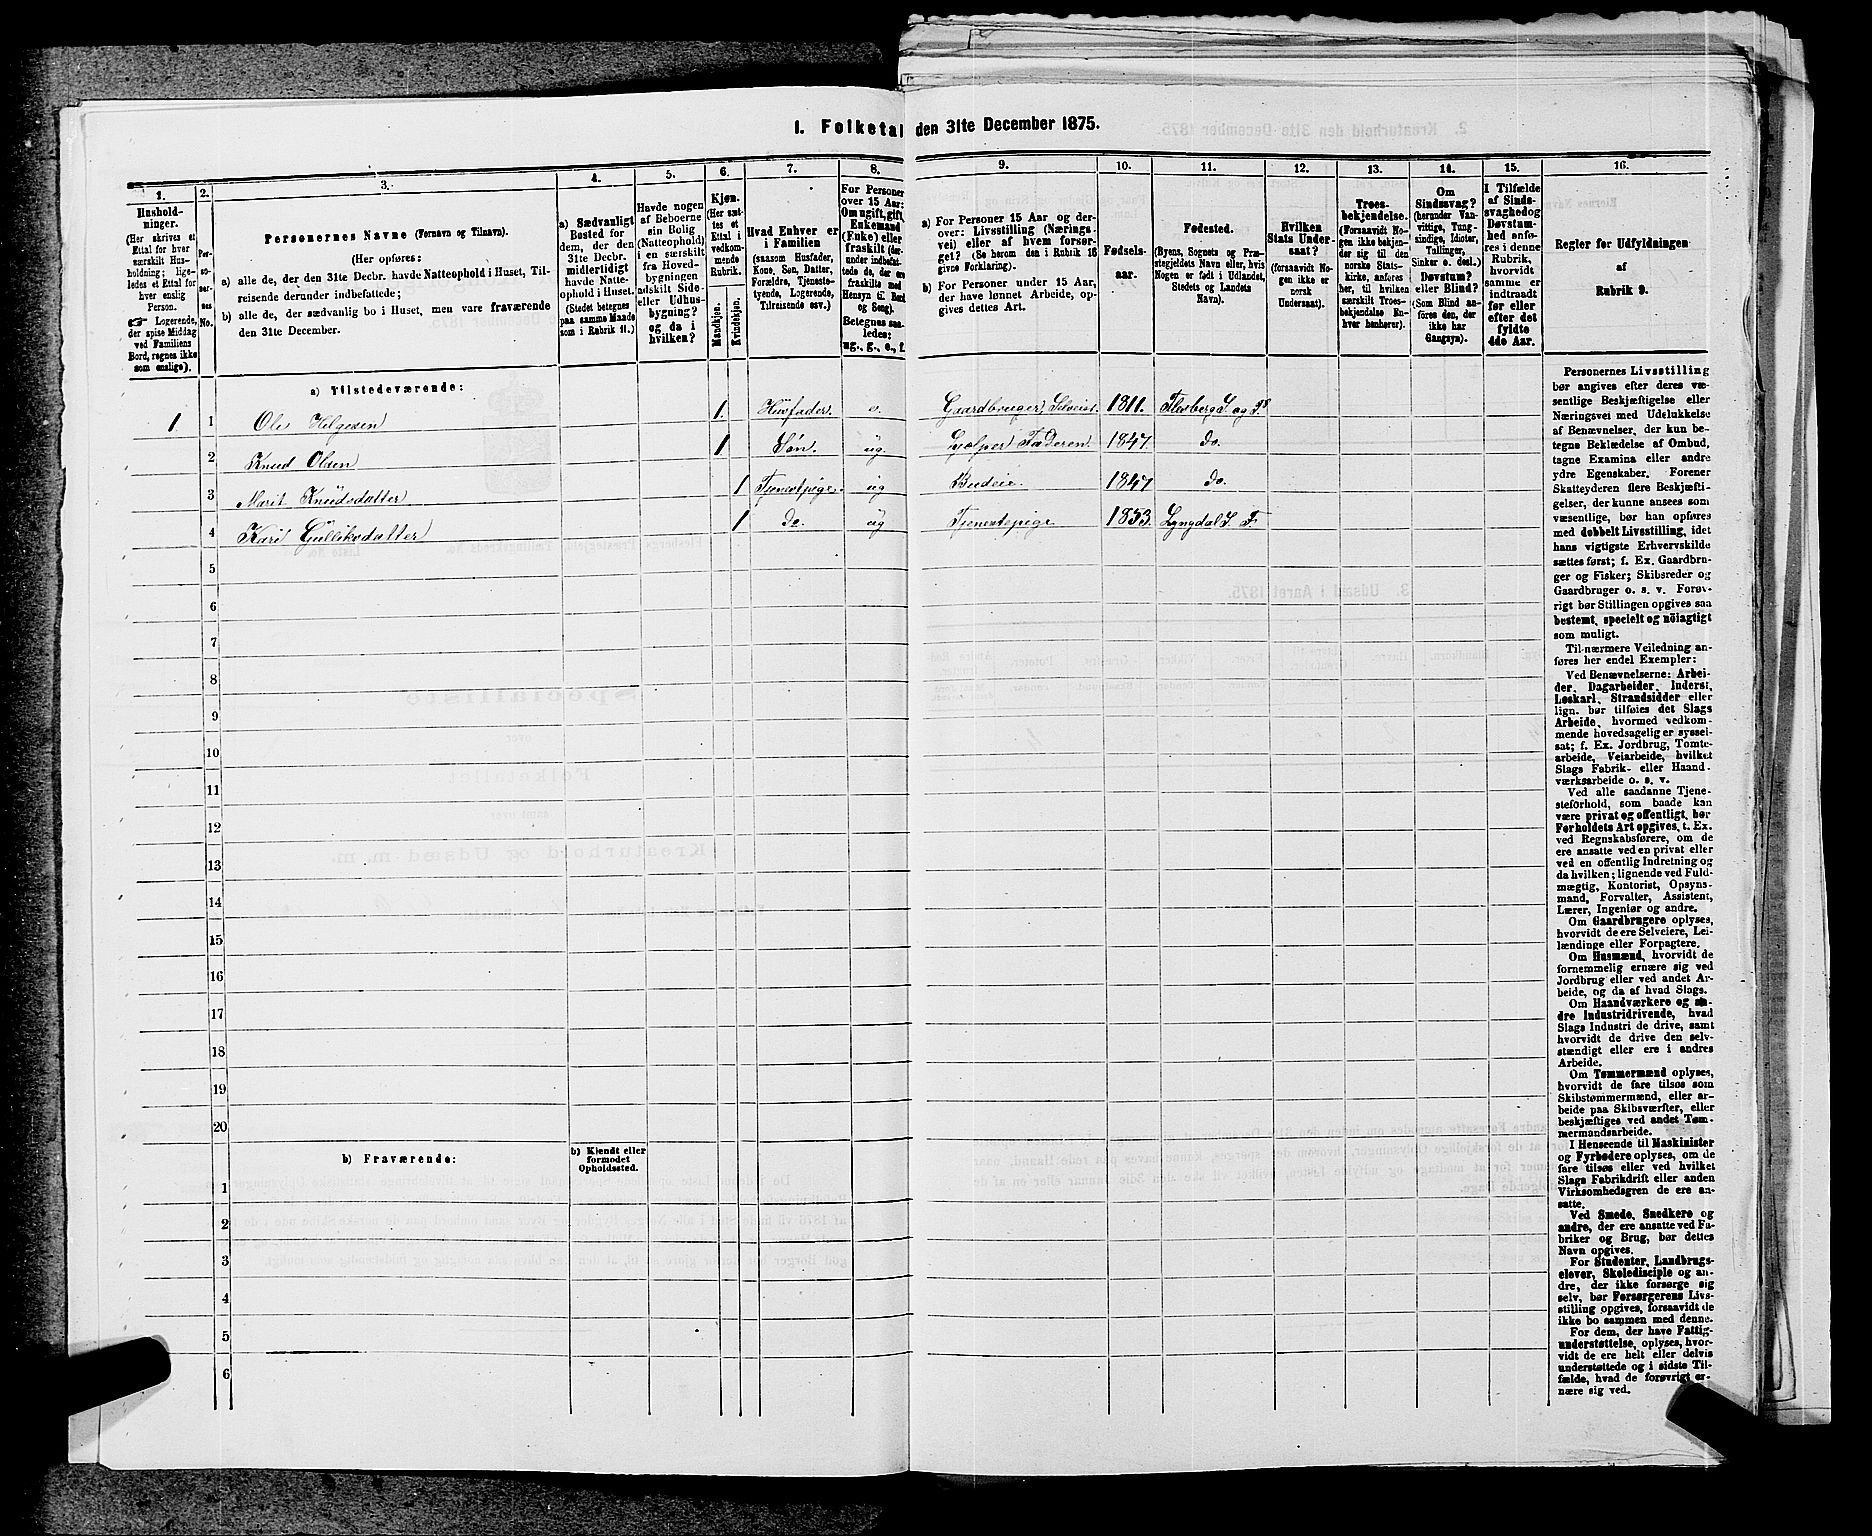 1. Folketal den 31te December 1875.
1. 2. 3. 4. 5. 6. 7. 8. 9. 10. 11. 12. 13. 14. 15. 16.
Hushold-
ninger.
(Her skrives et
Ettal for hver
særskilt Hus-
holdning; lige-
ledes et Ettal for
hver enslig
Person.
☞ Logerende,
der spise Middag
ved Familiens
Bord, regnes ikke
som enslige).
Per-
so-
ner-
nes
No.
Personernes Navne (Fornavn og Tilnavn).
(Her opføres:
a) alle de, der den 31te Decbr. havde Natteophold i Huset, Til-
reisende derunder indbefattede;
b) alle de, der sædvanlig bo i Huset, men vare fraværende
den 31te December.
a) Sædvanligt
Bosted for
dem, der den
31te Decbr.
midlertidigt
havde Natte-
ophold i Huset.
(Stedet betegnes
paa samme Maade
som i Rubrik 11.)
Havde nogen
af Beboerne
sin Bolig
(Natteophold)
i en særskilt
fra Hoved-
bygningen
adskilt Side-
eller Udhus-
bygning?
og da i
hvilken?
Kjøn.
(Her sæt-
tes et
Ettal i
vedkom-
mende
Rubrik.
Mandkjøn.
Kvindekjøn.
Hvad Enhver er
i Familien
(saasom Husfader,
Kone, Søn, Datter,
Forældre, Tjeneste-
tyende, Logerende,
Tilreisende osv.)
For Personer
over 15 Aar:
Om ugift, gift,
Enkemand
(Enke) eller
fraskilt (der-
under indbefat-
tede de, der ere
fraskilte med
Hensyn til Bord
og Seng).
Betegnes saa-
ledes:
ug., g., e., f.
a) For Personer 15 Aar og der-
over: Livsstilling (Nærings-
vei) eller af hvem forsør-
get? (Se herom den i Rubrik 16
givne Forklaring).
b) For Personer under 15 Aar,
der have lønnet Arbeide, op-
gives dettes Art.
Fødsels-
aar.
Fødested.
(Byens, Sognets og Præ-
stegjeldets Navn eller, hvis
Nogen er født i Udlandet,
Stedets og Landets
Navn).
Hvilken
Stats Under-
saat?
(forsaavidt No-
gen ikke er
norsk
Undersaat).
Troes-
bekjendelse.
(Forsaavidt No-
gen ikke bekjen-
der sig til den
norske Stats-
kirke, anføres
her, til hvilken
særskilt Troes-
bekjendelse En-
hver henhører).
Om
Sindssvag?
(herunder Van-
vittige, Tung-
sindige, Idioter,
Tullinger,
Sinker o. desl.)
Døvstum?
eller Blind?
(Som Blind an-
føres den, der
ikke har
Gangsyn).
I Tilfælde
af Sinds-
svaghed og
Døvstum-
hed anfø-
res i denne
Rubrik,
hvorvidt
samme er
indtraadt
før eller
efter det
fyldte
4de Aar.
Regler for Udfyldningen
af
Rubrik 9.
a) Tilstedeværende:
1 1 Ole Helgesen 1. Husfader. e. Gaardbruger, Selveier. 1811. Flesberg S. og P.
2 Knud Olsen 1 Søn. ug. Hjelper Faderen 1847. do.
3 Marit Knudsdatter 1 Tjenestpige. ug Budeie. 1847 do.
4 Kari Gulliksdatter 1 do. ug Tjenestepige 1853. Lyngdal S. F.
5
6
7
8
9
10
11
12
13
14
15
16
17
18
19
20
b) Fraværende:
b) Kjendt eller
formodet
Opholdssted.
1
2
3
4
5
6
Personernes Livsstilling
bør angives efter deres væ-
sentlige Beskjæftigelse eller
Næringsvei med Udelukkelse
af Benævnelser, der kun be-
tegne Beklædelse af Ombud,
tagne Examina eller andre
ydre Egenskaber. Forener
Skatteyderen flere Beskjæfti-
gelser, der kunne ansees som
væsentlige, bør han opføres
med dobbelt Livsstilling, idet
hans vigtigste Erhvervskilde
sættes først; f. Ex. Gaardbru-
ger og Fisker; Skibsreder og
Gaardbruger o. s. v. Forøv-
rigt bør Stillingen opgives saa
bestemt, specielt og nöiagtigt
som muligt.
Til nærmere Veiledning an-
føres her endel Exempler:
Ved Benævnelserne: Arbei-
der, Dagarbeider, Inderst,
Løskarl, Strandsidder eller
lign. bør tilføies det Slags
Arbeide, hvormed vedkom-
mende hovedsagelig er syssel-
sat; f. Ex. Jordbrug, Tomte-
arbeide, Veiarbeide, hvilket
Slags Fabrik- eller Haand-
værksarbeide o. s. v.
Ved alle saadanne Tjene-
steforhold, som baade kan
være privat og offentligt, bør
Forholdets Art opgives, t. Ex.
ved Regnskabsførere, om de
ere ansatte ved en privat eller
ved en offentlig Indretning og
da hvilken; lignende ved Fuld-
mægtig, Kontorist, Opsyns-
mand, Forvalter, Assistent,
Lærer, Ingeniør og andre.
Om Gaardbrugere oplyses,
hvorvidt de ere Selveiere, Lei-
lændinge eller Forpagtere.
Om Husmænd, hvorvidt de
fornemmelig ernære sig ved
Jordbrug eller ved andet Ar-
beide, og da af hvad Slags.
Om Haandværkere og an-
dre Industridrivende, hvad
Slags Industri de drive, samt
hvorvidt de drive den selv-
stændigt eller ere i andres
Arbeide.
Om Tømmermænd oplyses,
hvorvidt de fare tilsøs som
Skibstømmermænd, eller ar-
beide paa Skibsværfter, eller
beskjæftiges ved andet Tøm-
mermandsarbeide.
I Henseende til Maskinister
og Fyrbødere oplyses, om de
fare tilsøs eller ved hvilket
Slags Fabrikdrift eller anden
Virksomhedsgren de ere an-
satte.
Ved Smede, Snedkere og
andre, der ere ansatte ved Fa-
briker og Brug, bør dettes
Navn opgives.
For Studenter, Landbrugs-
elever, Skoledisciple og an-
dre, der ikke forsørge sig
selv, bør Forsørgerens Livs-
stilling opgives, forsaavidt de
ikke bo sammen med denne.
For dem, der have Fattig-
understøttelse, oplyses, hvor-
vidt de ere helt eller delvis
understøttede og i sidste Til-
fælde, hvad de forøvrigt er-
nære sig ved.